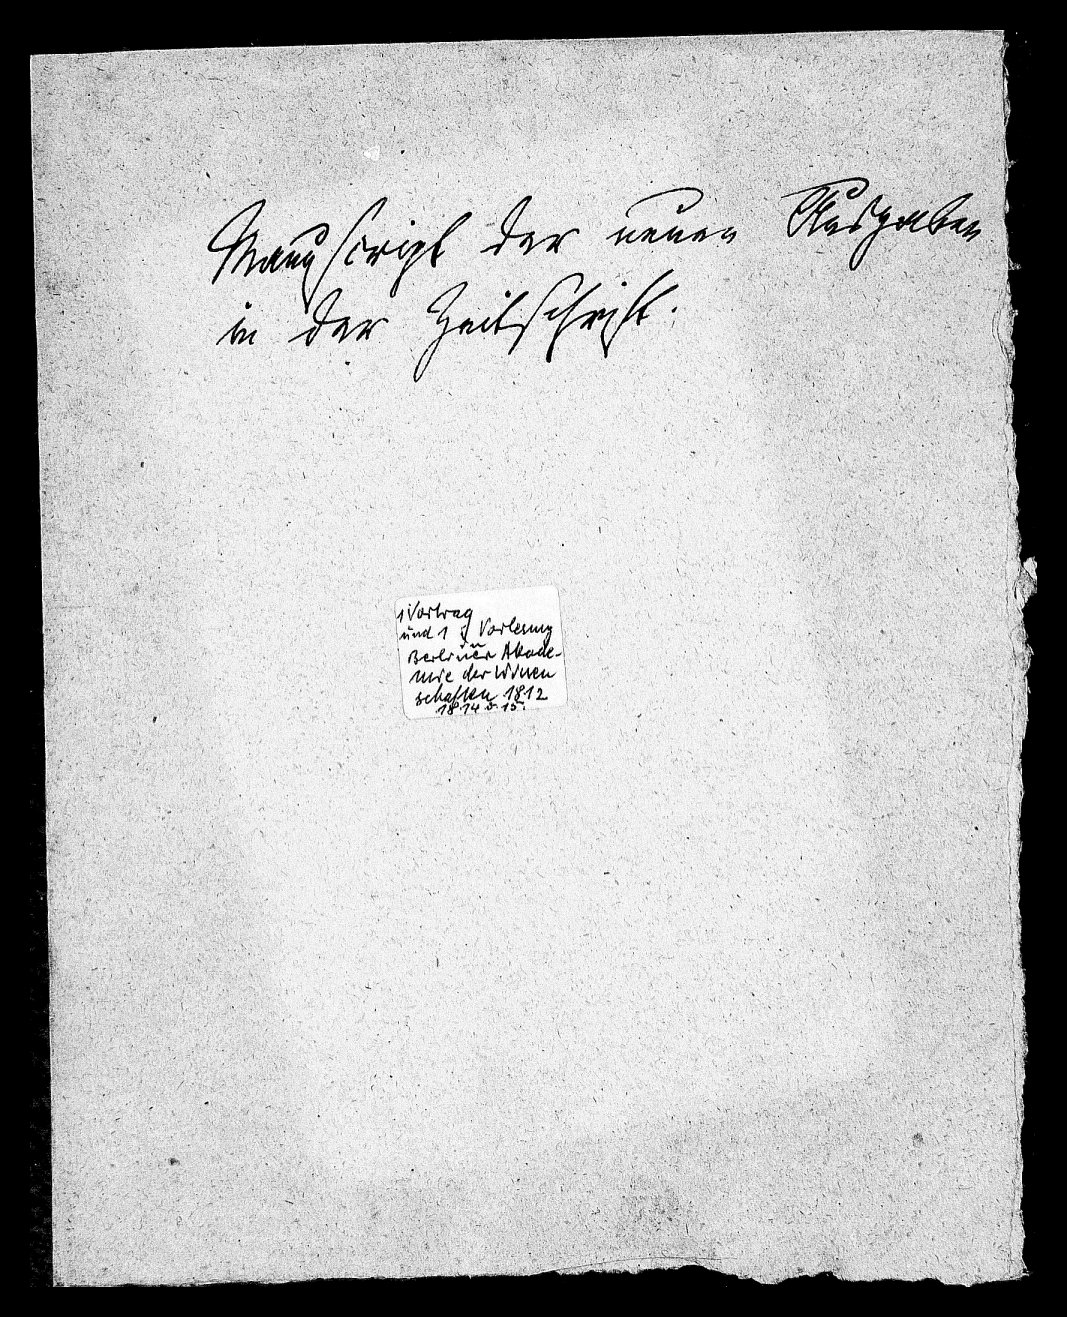 Manuscript der neuen Ausgaben
in der Zeitschrift.
1 Vortrag
und 1 Vorlesung
Berliner Akade-
mie der Wissen
schaften 1812
1814 u. 15.